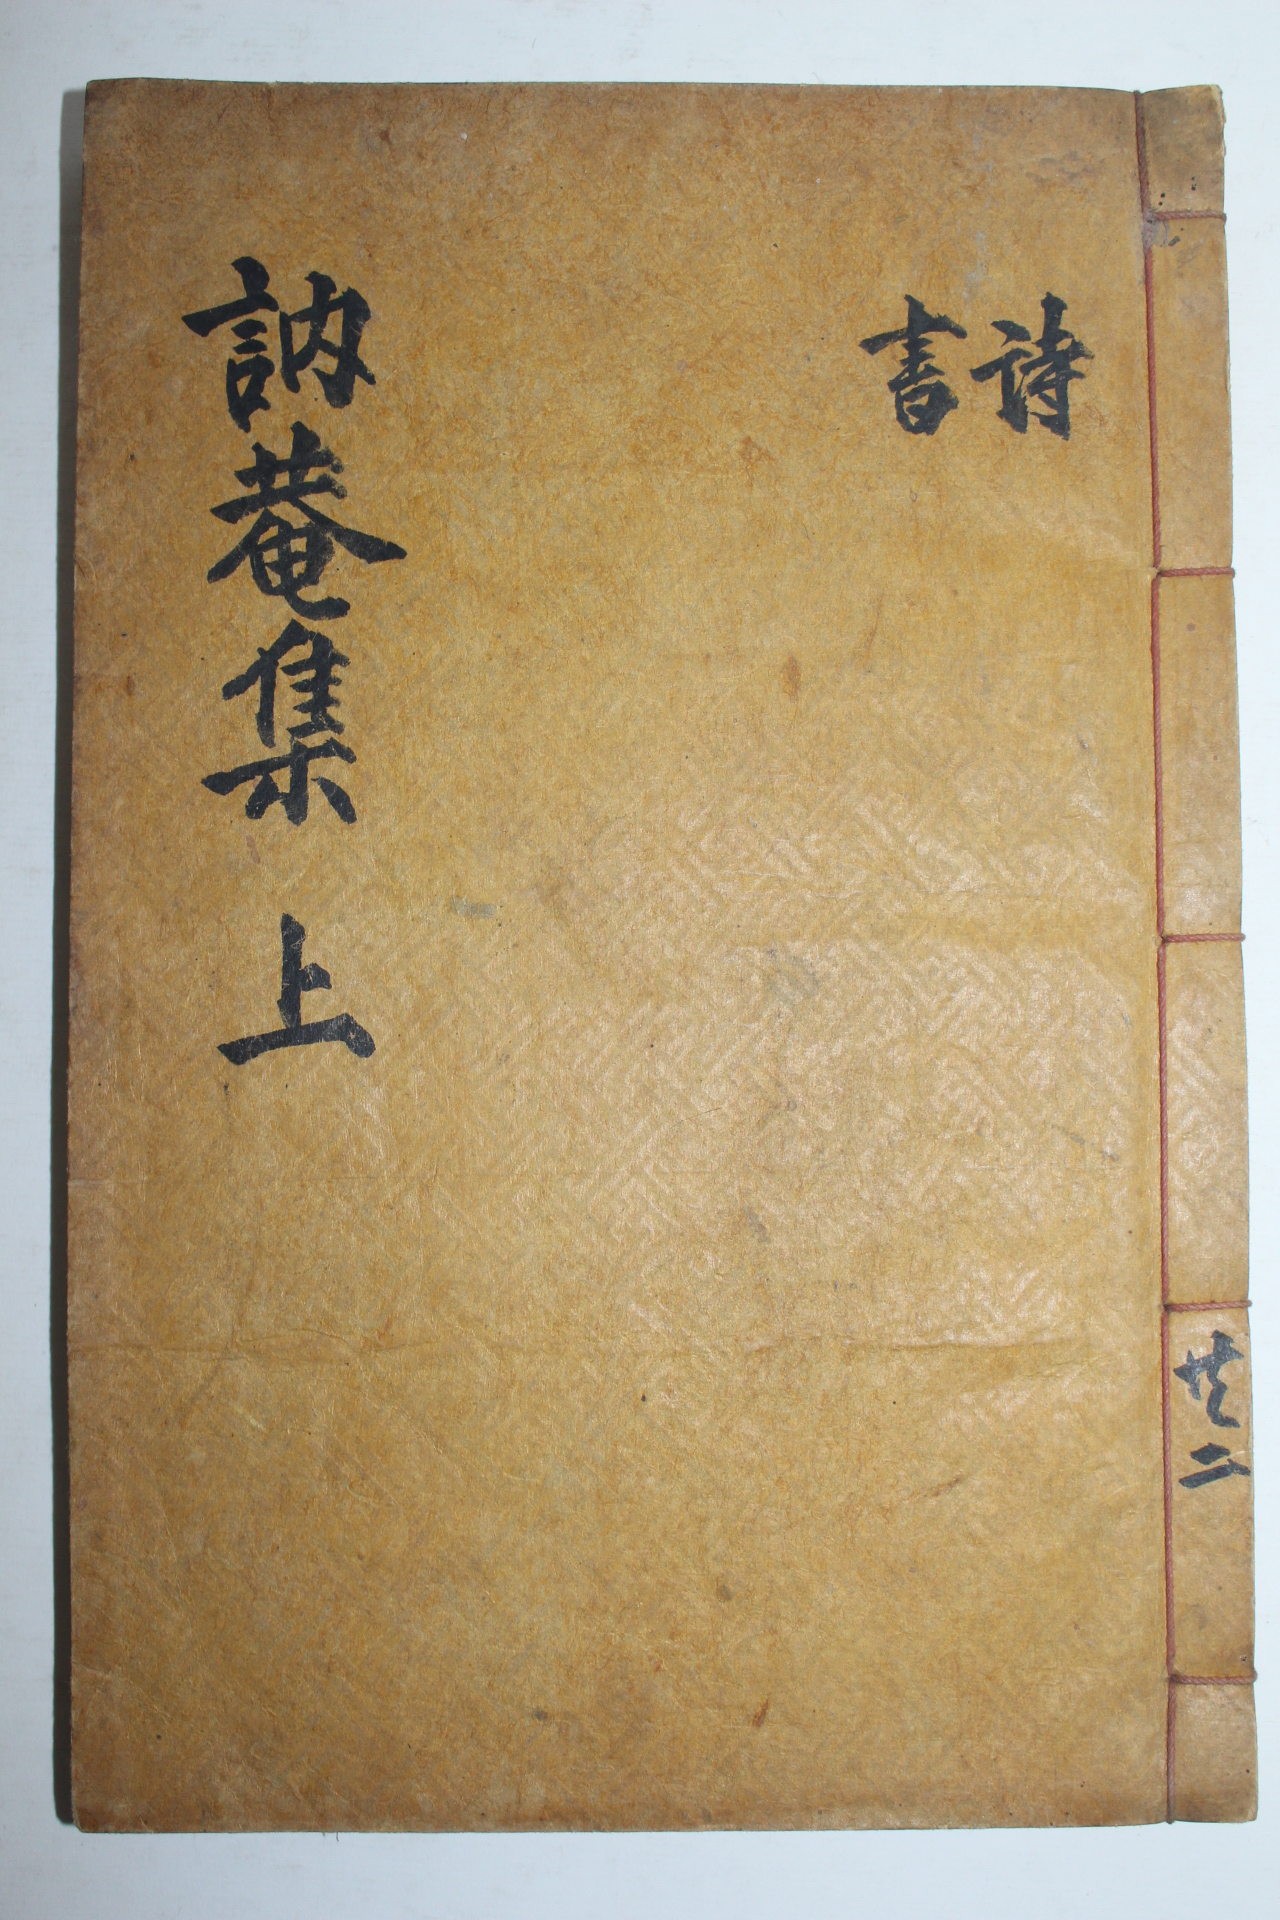 詩
書
訥菴集 上
共二